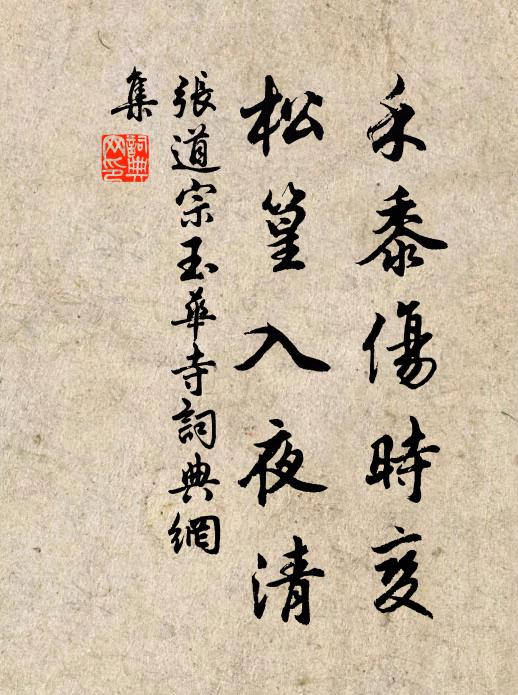 禾黍傷時変
松篁入夜清
張道宗玉華寺詞典網
集
詞典
网印